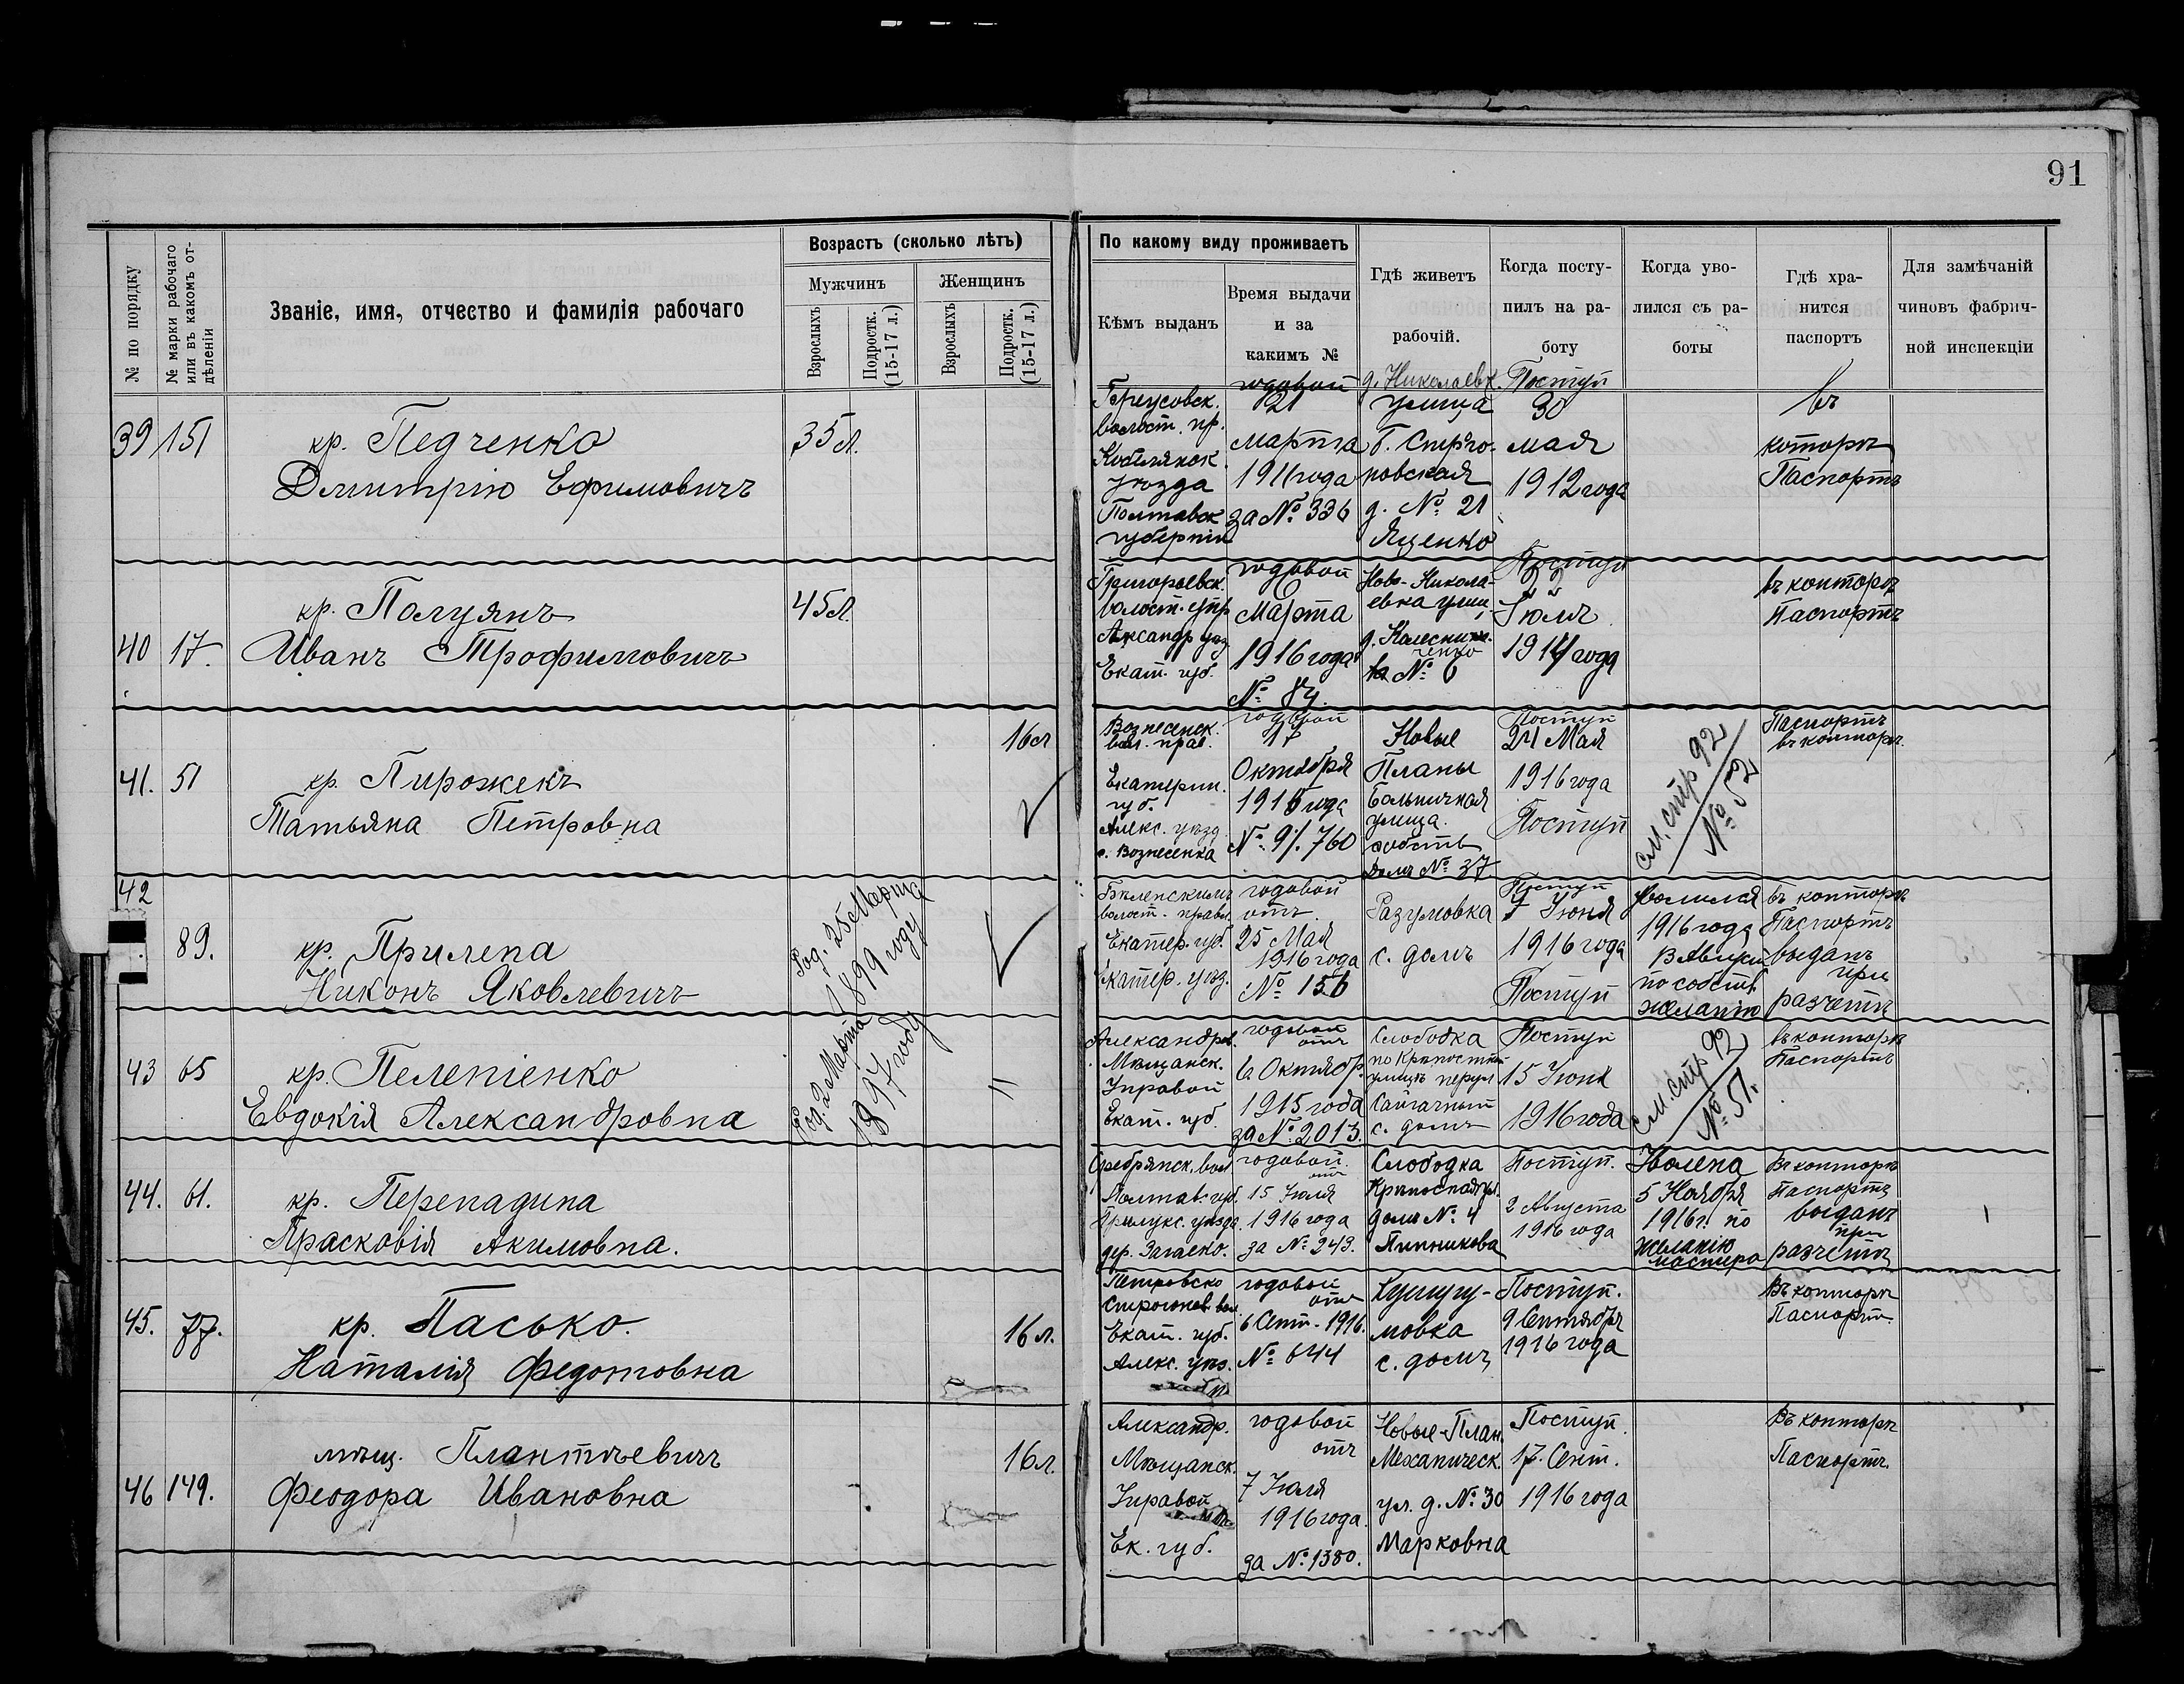 91
№ по порядку
№ марки рабочаго или въ какомъ отдѣленіи
Званіе, имя, отчество и фамилія рабочаго
Возрастъ (сколько лѣтъ)
Мужчинъ
Женщинъ
Взрослыхъ
Подростк. (15-17 л.)
Взрослыхъ
Подростк. (15-17 л.)
По какому виду проживаетъ
Кѣмъ выданъ
Время выдачи
и за
какимъ №
Гдѣ живетъ
рабочій.
Когда посту-
пилъ на ра-
боту
Когда уво-
лился съ ра-
боты
Гдѣ хра-
нится
паспортъ
Для замѣчаній
чиновъ фабрич-
ной инспекціи
39 151
кр. Педченко
Дмитрію Ефимовичъ
35 л.
волост. пр.
Кобелякск.
уѣзда
Полтавск
губерніи
годовой
21
марта
1911 года
за № 336
д. Николаевк.
улица
д. № 21
Яценко
Поступ
30
мая
1912 года
въ
конторѣ
Паспортъ
40 17.
кр. Полуянъ
Иванъ Трофимовичъ
45 л.
Григорьевск.
волост. упр
Екат. губ.
годовой
6
Марта
1916 года
Ново-Никола-
евка улиц.
№ 6
Поступ
22
Іюля
1914 года
въ конторѣ
Паспортъ
41. 51
кр. Пирожекъ
Татьяна Петровна
16 л
Вознесенск.
вол. прав.
Екатерин.
губ.
Алекс. уѣзд.
с. Вознесенка
годовой
17
Октября
1915 года
№ 9/. 760
Новые
Планы
Больничная
улица.
домъ № 37
Поступ
24 Мая
1916 года
Поступ
см. стр 92
№ 52
Паспортъ
въ конторѣ.
42
89.
кр. Прилепа
Никонъ Яковлевичъ
Род. 25 Марта
1899 году
волост. правл.
Екатер. губ.
Екатер. уѣз.
годовой
отъ
25 Мая
1916 года
№ 156
Разумовка
с. домъ
Поступ
7 Іюня
1916 года
Поступ
Уволился
1916 года
по собств.
желанію
въ конторѣ
Паспортъ
выданъ
при
разчетѣ
43 65
кр. Пелепіенко
Евдокія Александровна
Род. 2 Марта
1897 году
"
Александров.
Мѣщанск.
Управой
Екат. губ.
годовой
отъ
6. Октябр.
1915 года
за № 2013.
Слободка
по Крѣпостной
улицѣ
с. домъ
Поступ
15 Іюня
1916 года
см. стр 92
№ 51.
въ конторѣ
Паспортъ
44. 61.
кр. Перепадина
Прасковія Акимовна.
Полтав. губ.
Прилукс. уѣзда
годовой.
отъ
15 Іюля
1916 года
за № 243.
Слободка
домъ № 4
Поступ.
2 Августа
1916 года
Уволена
5 Ноября
1916 г. по
желанію
мастера
Въ конторѣ
Паспортъ
выданъ
при
разчетѣ
45. 77.
кр. Пасько.
Наталія Федотовна
16 л.
Петровско
Екат. губ.
Алекс. уѣз.
годовой
отъ
6 Сент. 1916.
№ 644
Кушугу-
мовка
с. домъ
Поступ.
9 Сентября
1916 года
Въ конторѣ
Паспортъ
46 149.
мѣщ. Плантъевичъ
Феодора Ивановна
16 л.
Александр.
Мѣщанск.
Управой
Ек. губ.
годовой
отъ
7 Іюля
1916 года.
за № 1380.
Новые-План.
Механическ.
ул. д. № 30
Марковна
Поступ.
17. Сент.
1916 года
Въ конторѣ
Паспортъ.